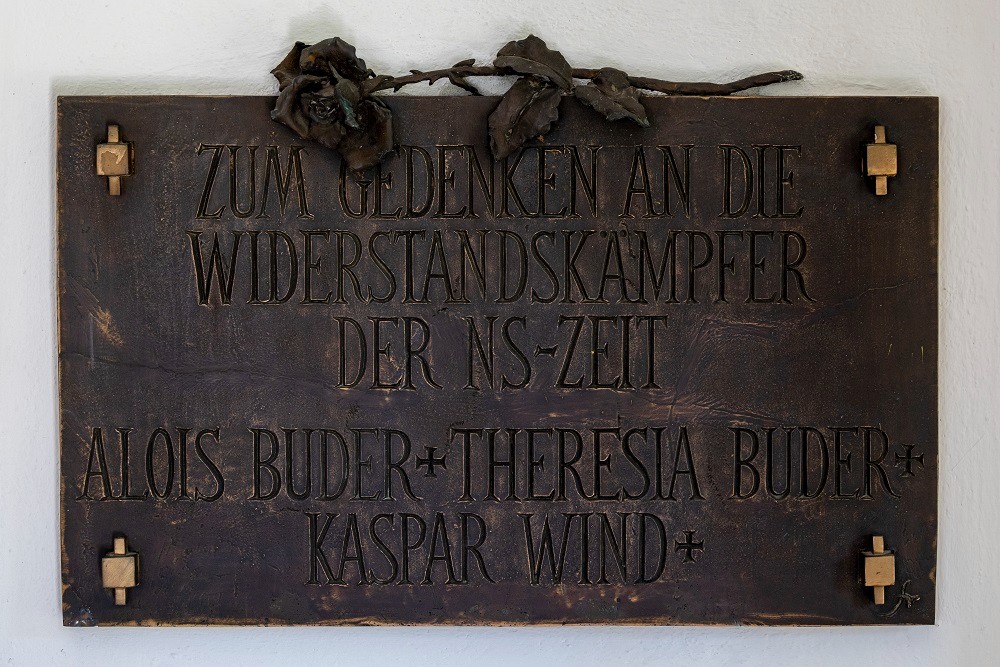 ZUM GEDENKEN AN DIE
WIDERSTANDSKÄMPFER
DER NS-ZEIT
ALOIS BUDER✠THERESIA BUDER✠
KASPAR WIND✠